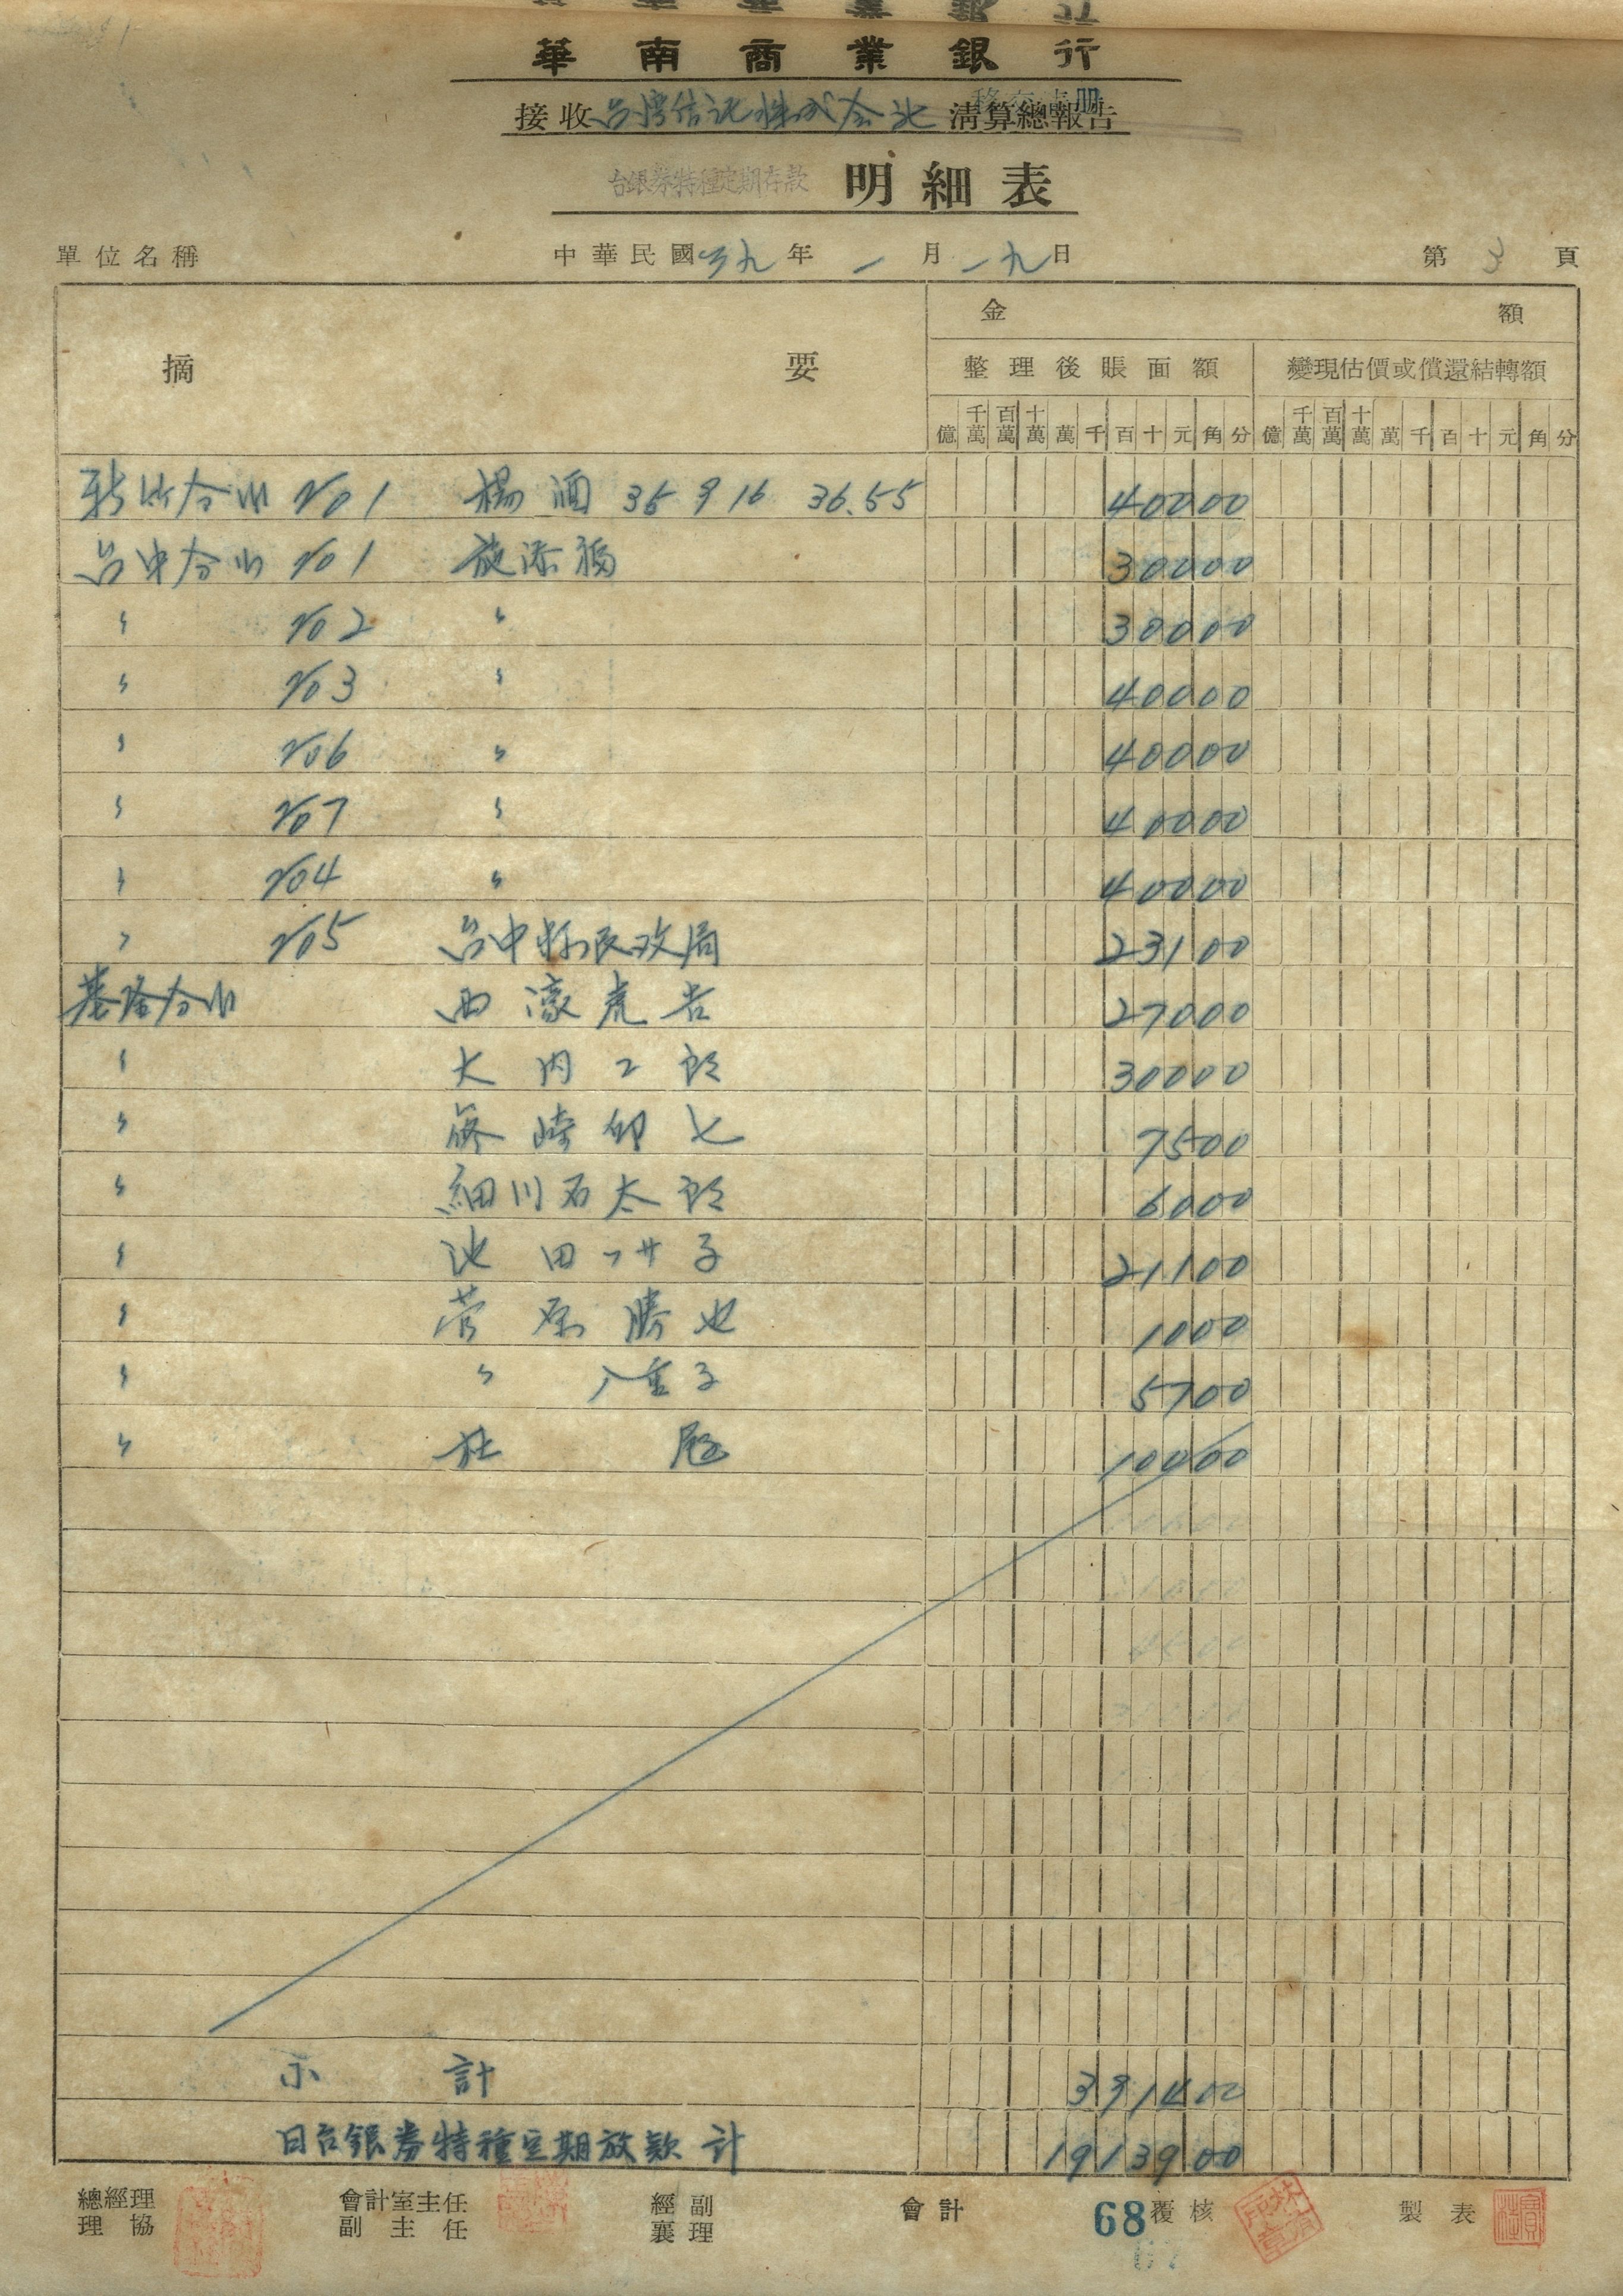 華南商業銀行
接收台灣信託株式会社清算總報告
移交清册
台銀券特種定期存款 明細表
單位名稱 中華民國三九年一月一九日 第3頁
摘要 金額
整理後賬面額 變現估價或償還結轉額
億 千萬 百萬 十萬 萬 千 百 十 元 角 分 億 千萬 百萬 十萬 萬 千 百 十 元 角 分
新竹分小 No1 楊 酒 35 9 16 36.55 40000
台中分小 No1 施添福 30000
〃 No2 〃 30000
〃 No3 〃 40000
〃 No6 〃 40000
〃 No7 〃 40000
〃 No4 〃 40000
〃 No5 台中縣民政局 23100
基隆分小 西濠虎吉 27000
〃 大内二郎 30000
〃 藤崎卯七 7500
〃 細川石太郎 6000
〃 池田フサ子 21100
〃 菅原勝也 1000
〃 〃 八重子 5700
〃 杜 10000
小計 391400
日台銀券特種定期放款計 1913900
總經理 會計室主任 經副 會計 覆核 製表
協理 副主任 襄理
68
67